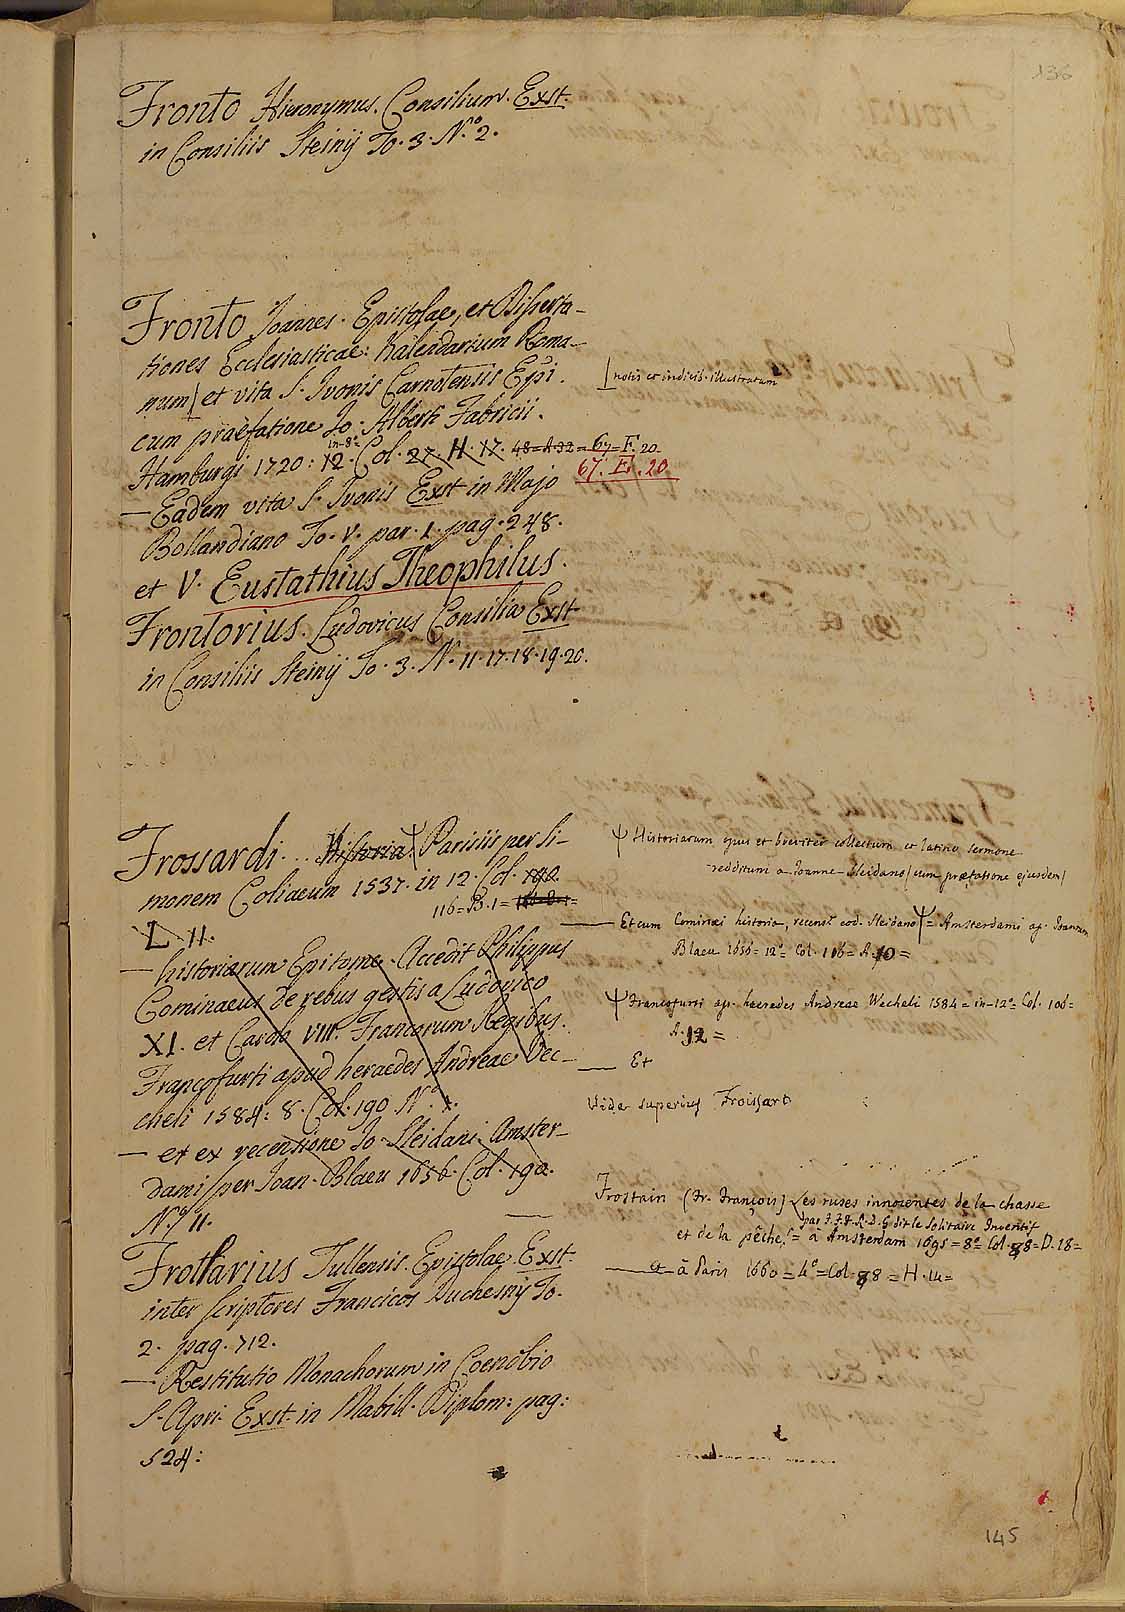 136
Fronto Hieronymus. Consilium. Exst.
in Consiliis Steinij To. 3. N.º 2.
Fronto Joannes. Epistolae, et Disserta-
tiones Ecclesiasticae: Kalendarium Roma-
num et vita S. Ivonis Carnotensis Epi.
notis et indicib. illustratum
cum praefatione Jo. Alberti Fabricii.
in-8º
Hamburgi 1720: 12. Col. 27. H. 17. 48=A 32 = 67=F. 20
67. F. 20
— Eadem vita S. Ivonis Exst in Majo
Bollandiano To. V. par. 1. pag. 248.
et V. Eustathius Theophilus.
Frontorius. Ludovicus Consilia Exst
in Consiliis Steinij To. 3. N. 11. 17. 18. 19. 20.
Frossardi... Historia. Ψ Parisiis per Si-
monem Coliaeum 1537. in 12. Col. 190.
116=B. 1=
L. 11.
— historiarum Epitome. Accedit Philippus
Cominaeus de rebus gestis a Ludovico
XI. et Carolo VIII. Francorum Regibus.
Francofurti apud heraedes Andreae Vec-
cheli 1584: 8. Col. 190 N.
— et ex recensione Jo. Sleidani. Amster-
dami per Joan. Blaeu 1656. Col. 190.
N. 11.
Ψ Historiarum opus et breviter collectum et latino sermone
redditum a Joanne Sleidano (cum praefatione ejusdem)
— Et cum Cominaei historia, recens.t eod. Sleidano Ψ = Amsterdami ap. Joannem
Blaeu 1656= 12º= Col. 116= A. 10=
Ψ Francofurti ap. haeredes Andreae Wecheli 1584= in-12º= Col. 106=
A. 12=
— Et
Vide superius Froissart
Frotharius Tullensis. Epistolae. Exst.
inter scriptores Francicos Duchesnij To.
2. pag. 712.
— Restitutio Monachorum in Coenobio
S. Apri. Exst. in Mabill. Diplom: pag:
524:
Frostain (Fr. François) Les ruses innocentes de la chasse
par F. F. F. R. D. G. dit le Solitaire Inventif
et de la pêche = à Amsterdam 1695= 8º= Col. 88=D. 18=
— à Paris 1660= 4º=Col. 88= H. 14=
145